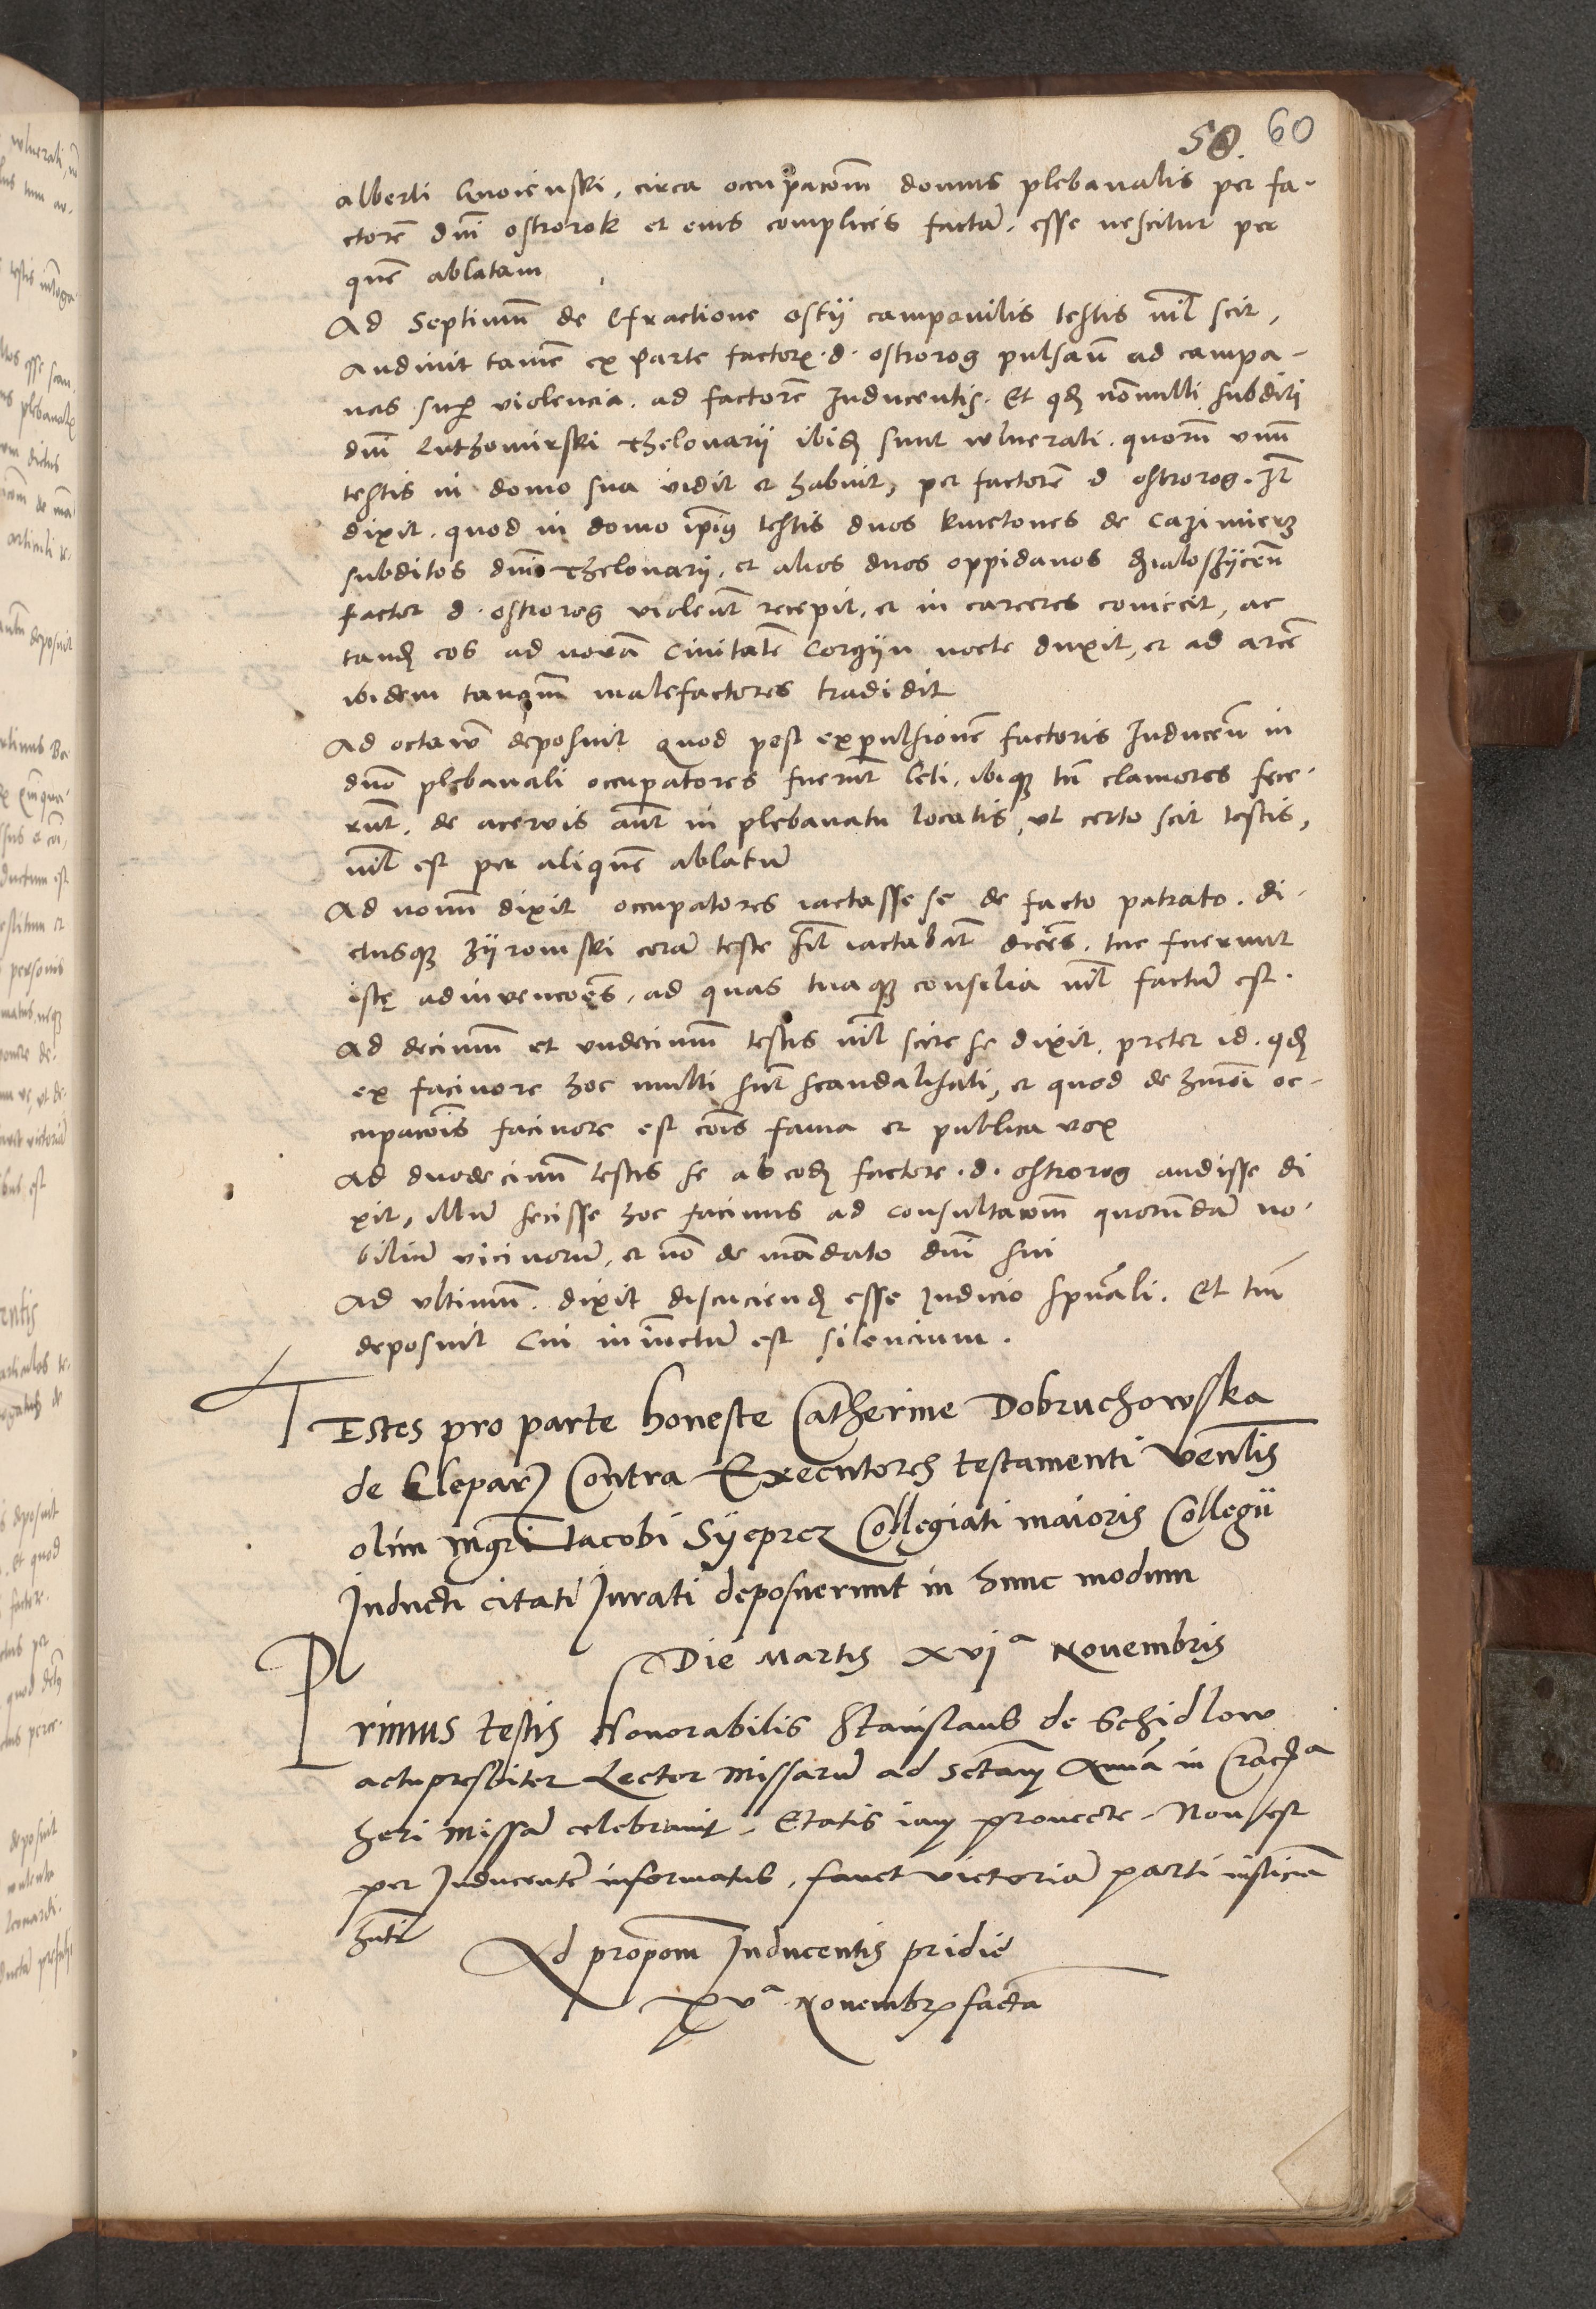 50. 60
alberti Gnoienski, circa occupacōm domus plebanalis per fa-
ctorē dnī ostrorok et eius complices factā. esse nescitur per
quē ablatam
Ad Septimū de Effractione ostij campanilis testis nil scit,
audiuit tamē ex parte factor d. ostrorog pulsatū ad campa-
nas sup violencia. ad factorē Inducentis. Et qd nōnulli subditi
dnī Luthomirski thelonarij ibid sunt wlnerati. quorū vnū
testis in domo sua vidit et habuit, per factorē d ostrorog. It
dixit. quod in domo ipius testis duos kmetones de Cazimierz
subditos dnī thelonarij, et alios duos oppidanos dialoszycen
factor d. ostrorog violent recepit, et in carceres coniecit, ac
tand eos ad nouā Ciuitatē Corzijn nocte duxit, et ad arcē
ibidem tanqm malefactores tradidit
Ad octauū deposuit quod post expulsionē factoris Inducen in
dmo plebanali occupatores fuerūt leti. ibiq tm clamores fece-
rūt. de aceruis aūt in plebanatu locatis, vt certo scit testis,
nil est per aliquē ablatū
Ad nonū dixit occupatores iactasse se de facto patrato. di-
ctusq Zyromski corā teste iactabat dicēs. tue fuerunt
iste adinuencoēs, ad quas tuaq consilia nil factū est.
Ad decimū et vndecimū testis nil scire se dixit. preter id. qd
ex facinore hoc multi sūt scandalisati, et quod de hmōi oc-
cupacōis facinore est cōis fama et publica vox
Ad duodecimū testis se ab eod factore. d. ostrorog audisse di
xit, illū fecisse hoc facinus ad consultacōm quorundā no-
biliū vicinorū, et nō de mādato dnī sui
Ad vltimū. dixit discuciend esse Iudicio spūali. Et tm
deposuit Cui iniūctū est silencium.
TEstes pro parte honeste Catherine Dobruchowska
de Klepar Contra Executores testamenti venlis
olim mgri Iacobi Syeprcz Collegiati maioris Collegii
Inducti citati Iurati deposuerunt in hunc modum
Die Martis xvja Nouembris
Primus testis Honorabilis Stanislaus de Schidlow
actu presbiter Lector Missarū ad Sctam Annā in Crac
heri Missā celebrauit. Etatis iam prouecte. Non est
per Inducentē informatus. fauet victoriā parti iusticiā
hnti
Ad propom Inducentis pridie
xva Nouembr facta